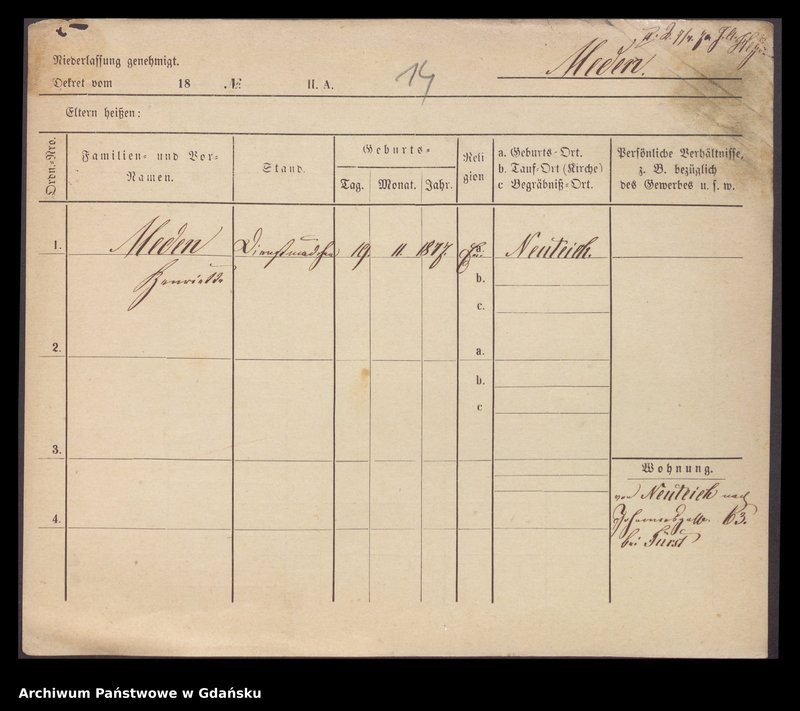 Meden.
Niederlassung genehmigt.
Dekret vom 18 . № II. A.
14
Eltern heißen:
Ordn.-Nro.
Familien- und Vor-
Namen.
Stand.
Geburts-
Tag. Monat. Jahr.
Reli
gion
a. Geburts-Ort.
b. Tauf-Ort (Kirche)
c Begräbniß-Ort.
Persönliche Verhältnisse,
z. B. bezüglich
des Gewerbes u. s. w.
1. Meden Dienstmädchen 19. 11. a. Neuteich.
Henriette
b.
c.
2. a.
b.
c
3.
Wohnung.
von Neuteich nach
Johannesgasse 63.
4.
bei Fürst
Archiwum Państwowe w Gdańsku